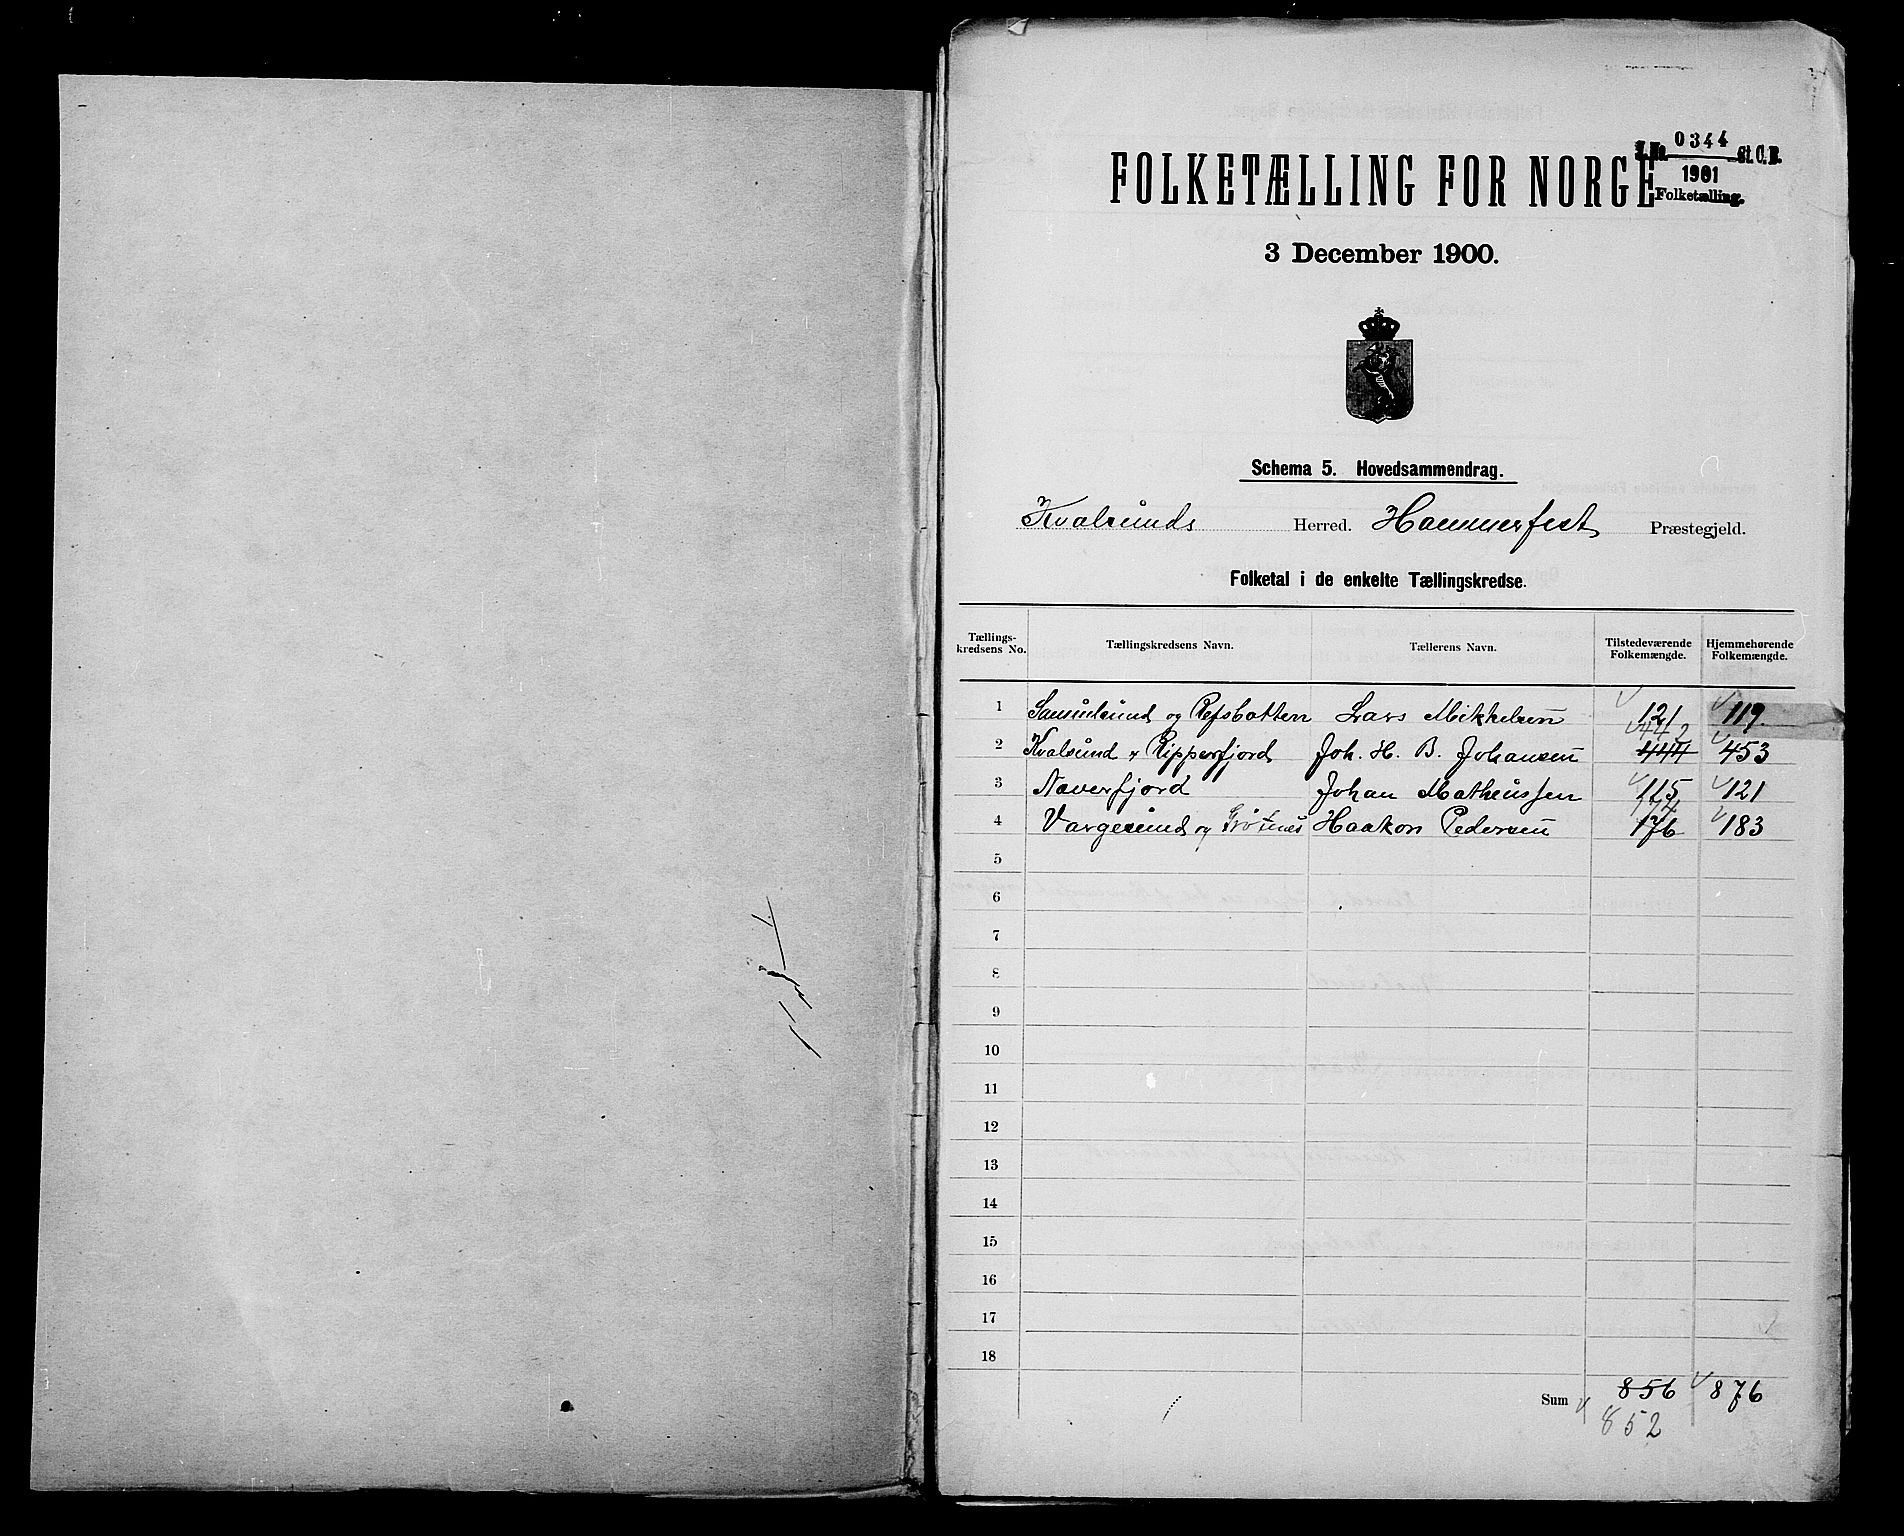 J. No. 0344 St. C. B.
1901
Folketælling.
FOLKETÆLLING FOR NORGE
3 December 1900.
Schema 5. Hovedsammendrag.
Kvalsunds Herred. Hammerfest Præstegjeld.
Folketal i de enkelte Tællingskredse.
Tællings-kredsens No. Tællingskredsens Navn. Tællerens Navn. Tilstedeværende Folkemængde. Hjemmehørende Folkemængde.
1 Samulsund og Refsbotten Lars Mikkelsen 121 119
442
2 Kvalsund & Ripperfjord Joh. H. B. Johansen 444 453
3 Naverfjord Johan Matheussen 115 121
174
4 Vargesund og Grøtnes Haakon Pedersen 176 183
5
6
7
8
9
10
11
12
13
14
15
16
17
18
Sum 856 876
852